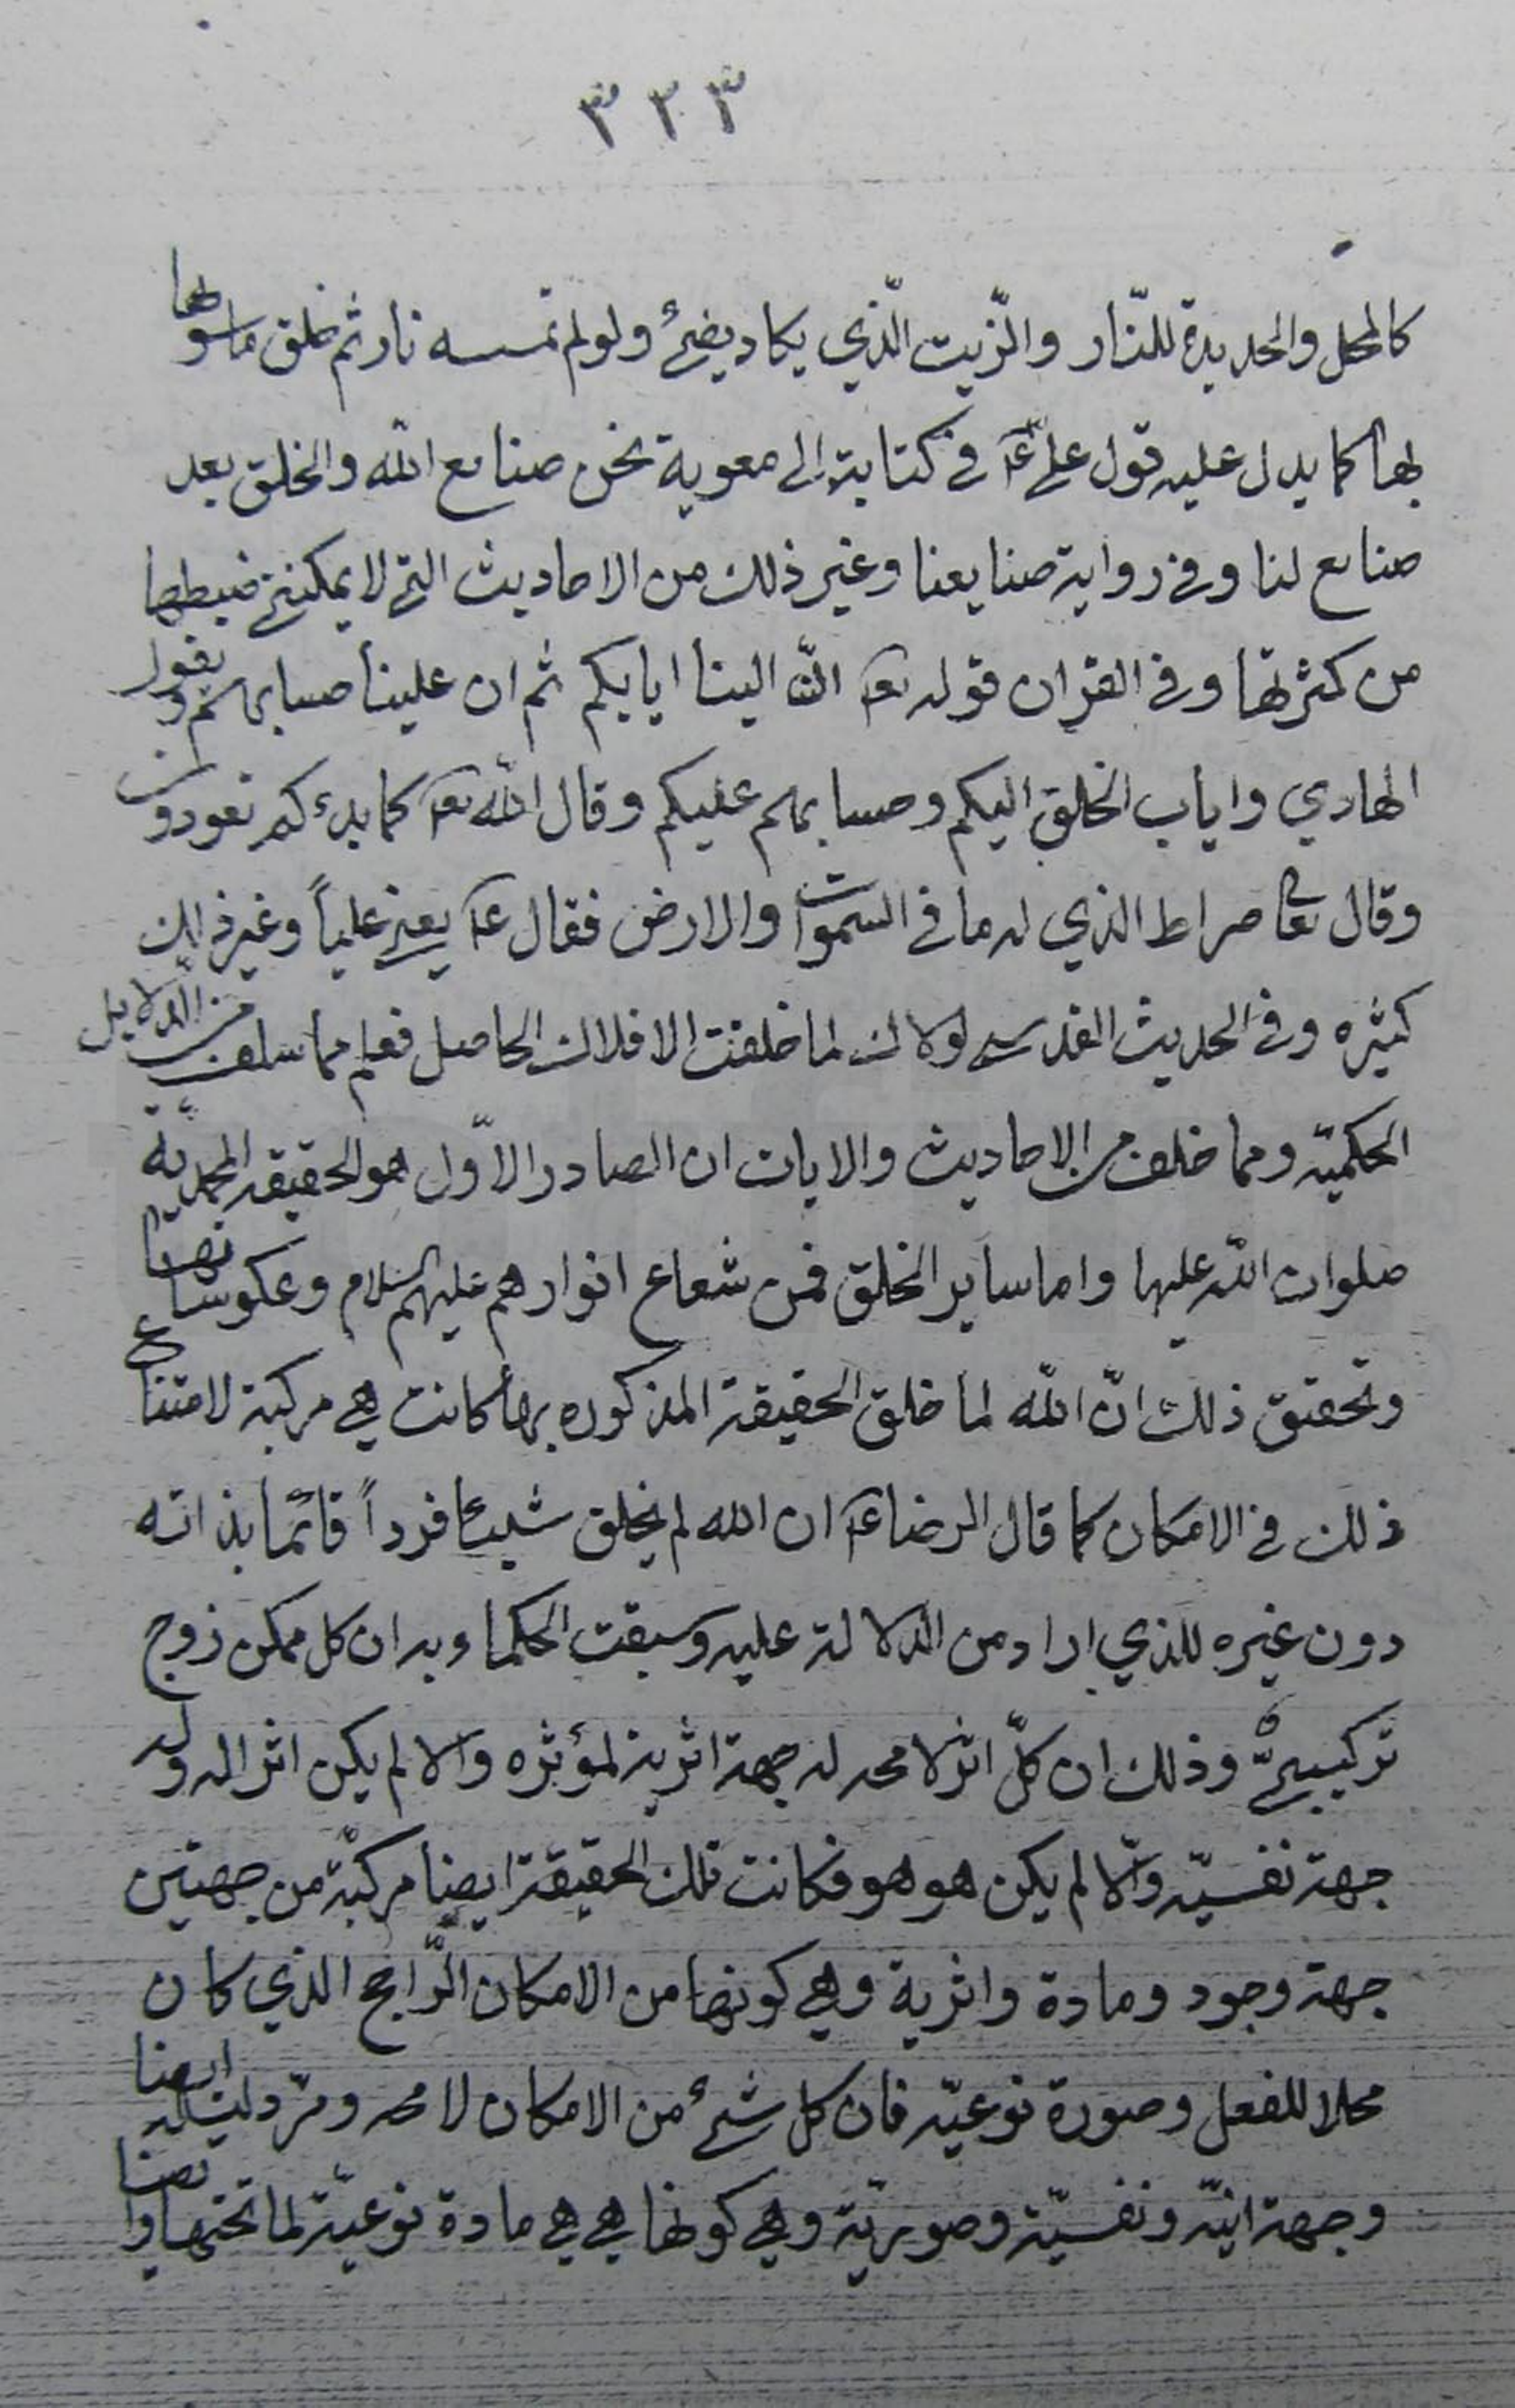 ٣٢٣
كالمحل والحديدة للنّار والزّيت الّذي يكاد يضئ ولو لم تمسسه نار ثم خلق ماسواها
بها كما يدل عليه قول علي عم في كتابته الى معوية نحن صنايع الله والخلق بعد
صنايع لنا وفي رواية صنايعنا وغير ذلك من الاحاديث التي لا يمكنني ضبطها
من كثرتها وفي القران قوله تعم الينا ايابكم ثم ان علينا حسابهم ويقول
الهادي واياب الخلق اليكم وحسابهم عليكم وقال الله تعم كما بدءكم تعودون
وقال تعا صراط الذي له ما في السموات والارض فقال عم يعني علياً وغير ذلك
كثيره وفي الحديث القدسي لولاك لما خلقت الافلاك الحاصل فعلم مما سلف من الدلايل
الحكميّه ومما خلف من الاحاديث والايات ان الصادر الاوّل هو الحقيقه المحمديّة
صلوات الله عليها واما ساير الخلق فمن شعاع انوارهم عليهم السلام وعكوساتها
وتحقيق ذلك انّ الله لما خلق الحقيقة المذكوره بها كانت هي مركبة لامتناع
ذلك في الامكان كما قال الرضا عم ان الله لم يخلق شيئا فرداً قائما بذاته
دون غيره للذي اراد من الدلالة عليه وسبقت الحكماء وبه ان كل ممكن زوج
تركيبيّ وذلك ان كلّ اثر لا محه له جهة اثرية لمؤثره والا لم يكن اثرا له وله
جهة نفسيّه والّا لم يكن هو هو فكانت تلك الحقيقة ايضا مركبّة من جهتين
جهة وجود ومادة واثرية وهي كونها من الامكان الرّاجح الذي كان
محلا للفعل وصورة نوعيّه فان كل شئ من الامكان لا محه ومرّ دليله ايضا
وجهة انيّه ونفسيّة وصوريّة وهي كونها هي هي مادة نوعيّة لما تحتها